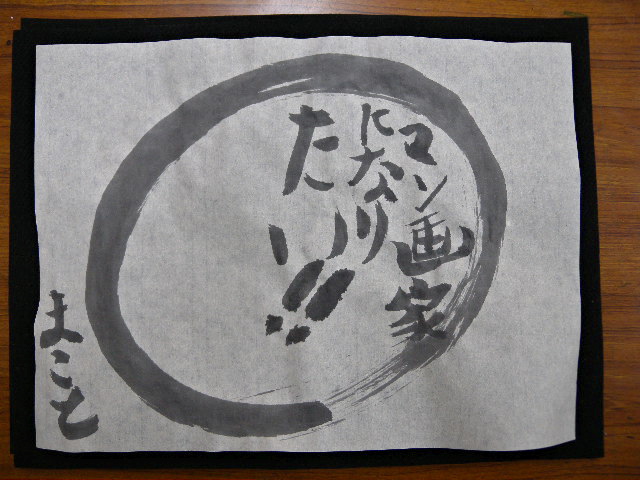 マンガ家
になり
たい!!
まこと